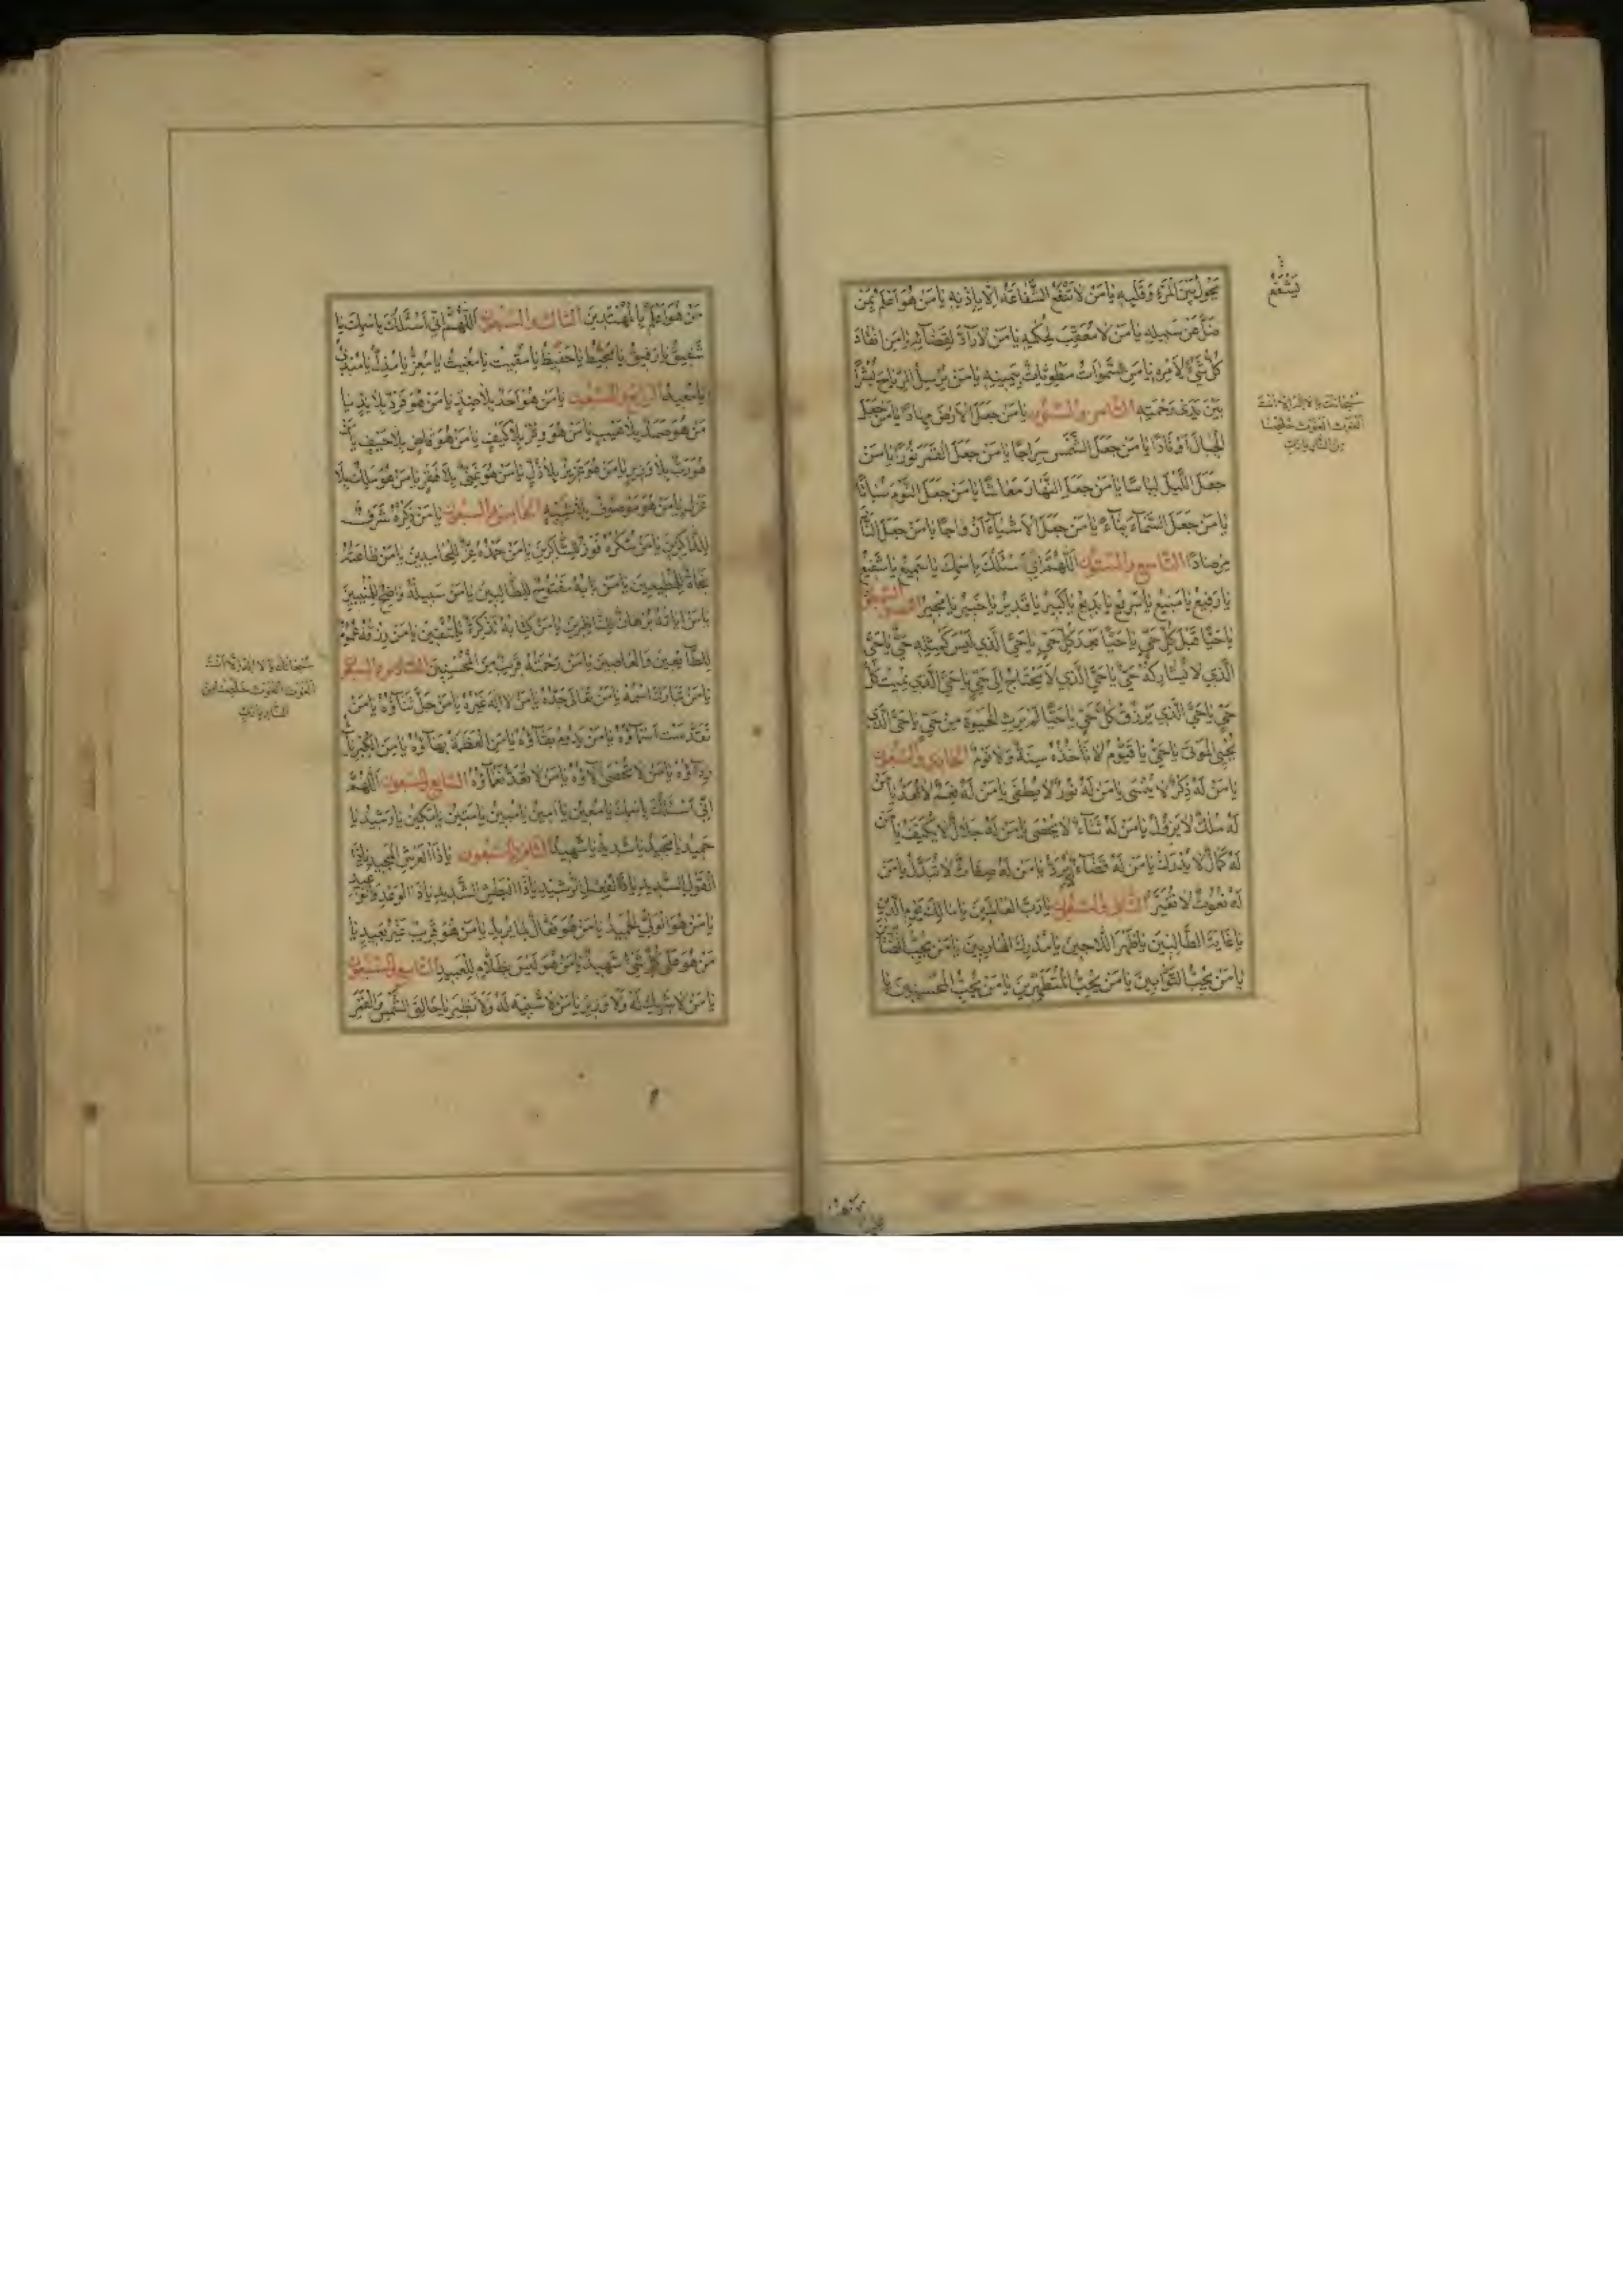 يَحُولُ بَيْنَ الْمَرْءِ وَقَلْبِهِ يَا مَنْ لَا تَنْفَعُ الشَّفَاعَةُ اِلَّا بِاِذْنِهِ يَا مَنْ هُوَ اَعْلَمُ بِمَنْ
ضَلَّ عَنْ سَبِيلِهِ يَا مَنْ لَا مُعَقِّبَ لِحُكْمِهِ يَا مَنْ لَا رَآدَّ لِقَضَآئِهِ يَا مَنِ انْقَادَ
كُلُّ شَيْءٍ لِاَمْرِهِ يَا مَنِ السَّمٰوَاتُ مَطْوِيَّاتٌ بِيَمِينِهِ يَا مَنْ يُرْسِلُ الرِّيَاحَ بُشْرًا
بَيْنَ يَدَيْ رَحْمَتِهِ الثَّامِن وَالسِّتُّون يَا مَنْ جَعَلَ الْاَرْضَ مِهَادًا يَا مَنْ جَعَلَ
الْجِبَالَ اَوْتَادًا يَا مَنْ جَعَلَ الشَّمْسَ سِرَاجًا يَا مَنْ جَعَلَ الْقَمَرَ نُورًا يَا مَنْ
جَعَلَ اللَّيْلَ لِبَاسًا يَا مَنْ جَعَلَ النَّهَارَ مَعَاشًا يَا مَنْ جَعَلَ النَّوْمَ سُبَاتًا
يَا مَنْ جَعَلَ السَّمَآءَ بِنَآءً يَا مَنْ جَعَلَ الْاَشْيَآءَ اَزْوَاجًا يَا مَنْ جَعَلَ النَّارَ
مِرْصَادًا التَّاسِع وَالسِّتُّون اَللّٰهُمَّ اِنِّي اَسْئَلُكَ بِاسْمِكَ يَا سَمِيعُ يَا شَفِيعُ
يَا رَفِيعُ يَا مَنِيعُ يَا سَرِيعُ يَا بَدِيعُ يَا كَبِيرُ يَا قَدِيرُ يَا خَبِيرُ يَا مُجِيرُ السبعون
يَا حَيًّا قَبْلَ كُلِّ حَيٍّ يَا حَيًّا بَعْدَ كُلِّ حَيٍّ يَا حَيُّ الَّذِي لَيْسَ كَمِثْلِهِ حَيٌّ يَا حَيُّ
الَّذِي لَا يُشَارِكُهُ حَيٌّ يَا حَيُّ الَّذِي لَا يَحْتَاجُ اِلٰى حَيٍّ يَا حَيُّ الَّذِي يُمِيتُ كُلَّ
حَيٍّ يَا حَيُّ الَّذِي يَرْزُقُ كُلَّ حَيٍّ يَا حَيًّا لَمْ يَرِثِ الْحَيٰوةَ مِنْ حَيٍّ يَا حَيُّ الَّذِي
يُحْيِي الْمَوْتٰى يَا حَيُّ يَا قَيُّومُ لَا تَأْخُذُهُ سِنَةٌ وَلَا نَوْمٌ الحَادِي وَالسَّبْعُون
يَا مَنْ لَهُ ذِكْرٌ لَا يُنْسٰى يَا مَنْ لَهُ نُورٌ لَا يُطْفٰى يَا مَنْ لَهُ نِعَمٌ لَا تُعَدُّ يَا مَنْ
لَهُ مُلْكٌ لَا يَزُولُ يَا مَنْ لَهُ ثَنَآءٌ لَا يُحْصٰى يَا مَنْ لَهُ جَلَالٌ لَا يُكَيَّفُ يَا مَنْ
لَهُ كَمَالٌ لَا يُدْرَكُ يَا مَنْ لَهُ قَضَآءٌ لَا يُرَدُّ يَا مَنْ لَهُ صِفَاتٌ لَا تُبَدَّلُ يَا مَنْ
لَهُ نُعُوتٌ لَا تُغَيَّرُ الثَّانِي وَالسَّبْعُون يَا رَبَّ الْعَالَمِينَ يَا مَالِكَ يَوْمِ الدِّينِ
يَا غَايَةَ الطَّالِبِينَ يَا ظَهْرَ اللَّاجِينَ يَا مُدْرِكَ الْهَارِبِينَ يَا مَنْ يُحِبُّ الصَّابِرِينَ
يَا مَنْ يُحِبُّ التَّوَّابِينَ يَا مَنْ يُحِبُّ الْمُتَطَهِّرِينَ يَا مَنْ يُحِبُّ الْمُحْسِنِينَ يَا
يَشْفَعُ
سُبْحَانَكَ يَا لَا اِلٰهَ اِلَّا اَنْتَ
الْغَوْثَ الْغَوْثَ خَلِّصْنَا
مِنَ النَّارِ يَا رَبِّ
مَنْ هُوَ اَعْلَمُ بِالْمُهْتَدِينَ الثَّالِث وَالسَّبْعُون اَللّٰهُمَّ اِنِّي اَسْئَلُكَ بِاسْمِكَ يَا
شَفِيقُ يَا رَفِيقُ يَا مُحِيطُ يَا حَفِيظُ يَا مُقِيتُ يَا مُغِيثُ يَا مُعِزُّ يَا مُذِلُّ يَا مُبْدِئُ
يَا مُعِيدُ الرَّابِع وَالسَّبْعُون يَا مَنْ هُوَ اَحَدٌ بِلَا ضِدٍّ يَا مَنْ هُوَ فَرْدٌ بِلَا نِدٍّ يَا
مَنْ هُوَ صَمَدٌ بِلَا عَيْبٍ يَا مَنْ هُوَ وِتْرٌ بِلَا كَيْفٍ يَا مَنْ هُوَ قَاضٍ بِلَا حَيْفٍ يَا مَنْ
هُوَ رَبٌّ بِلَا وَزِيرٍ يَا مَنْ هُوَ عَزِيزٌ بِلَا ذُلٍّ يَا مَنْ هُوَ غَنِيٌّ بِلَا فَقْرٍ يَا مَنْ هُوَ مَلِكٌ بِلَا
عَزْلٍ يَا مَنْ هُوَ مَوْصُوفٌ بِلَا شَبِيهٍ الخَامِس وَالسَّبْعُون يَا مَنْ ذِكْرُهُ شَرَفٌ
لِلذَّاكِرِينَ يَا مَنْ شُكْرُهُ فَوْزٌ لِلشَّاكِرِينَ يَا مَنْ حَمْدُهُ عِزٌّ لِلْحَامِدِينَ يَا مَنْ طَاعَتُهُ
نَجَاةٌ لِلْمُطِيعِينَ يَا مَنْ بَابُهُ مَفْتُوحٌ لِلطَّالِبِينَ يَا مَنْ سَبِيلُهُ وَاضِحٌ لِلْمُنِيبِينَ
يَا مَنْ اٰيَاتُهُ بُرْهَانٌ لِلنَّاظِرِينَ يَا مَنْ كِتَابُهُ تَذْكِرَةٌ لِلْمُتَّقِينَ يَا مَنْ رِزْقُهُ عُمُومٌ
لِلطَّآئِعِينَ وَالْعَاصِينَ يَا مَنْ رَحْمَتُهُ قَرِيبٌ مِنَ الْمُحْسِنِينَ السَّادِس وَالسَّبْعُون
يَا مَنْ تَبَارَكَ اسْمُهُ يَا مَنْ تَعَالٰى جَدُّهُ يَا مَنْ لَا اِلٰهَ غَيْرُهُ يَا مَنْ جَلَّ ثَنَآؤُهُ يَا مَنْ
تَقَدَّسَتْ اَسْمَآؤُهُ يَا مَنْ يَدُومُ بَقَآؤُهُ يَا مَنِ الْعَظَمَةُ بَهَآؤُهُ يَا مَنِ الْكِبْرِيَآءُ
رِدَآؤُهُ يَا مَنْ لَا تُحْصٰى اٰلَآؤُهُ يَا مَنْ لَا تُعَدُّ نَعْمَآؤُهُ السَّابِع وَالسَّبْعُون اَللّٰهُمَّ
اِنِّي اَسْئَلُكَ بِاسْمِكَ يَا مُعِينُ يَا اَمِينُ يَا مُبِينُ يَا مَتِينُ يَا مَكِينُ يَا رَشِيدُ يَا
حَمِيدُ يَا مَجِيدُ يَا شَدِيدُ يَا شَهِيدُ الثَّامِن وَالسَّبْعُون يَا ذَا الْعَرْشِ الْمَجِيدِ يَا ذَا
الْقَوْلِ السَّدِيدِ يَا ذَا الْفِعْلِ الرَّشِيدِ يَا ذَا الْبَطْشِ الشَّدِيدِ يَا ذَا الْوَعْدِ وَالْوَعِيدِ
يَا مَنْ هُوَ الْوَلِيُّ الْحَمِيدُ يَا مَنْ هُوَ فَعَّالٌ لِمَا يُرِيدُ يَا مَنْ هُوَ قَرِيبٌ غَيْرُ بَعِيدٍ يَا
مَنْ هُوَ عَلٰى كُلِّ شَيْءٍ شَهِيدٌ يَا مَنْ هُوَ لَيْسَ بِظَلَّامٍ لِلْعَبِيدِ التَّاسِع وَالسَّبْعُون
يَا مَنْ لَا شَرِيكَ لَهُ وَلَا وَزِيرَ يَا مَنْ لَا شَبِيهَ لَهُ وَلَا نَظِيرَ يَا خَالِقَ الشَّمْسِ وَالْقَمَرِ
سُبْحَانَكَ يَا لَا اِلٰهَ اِلَّا اَنْتَ
الْغَوْثَ الْغَوْثَ خَلِّصْنَا مِنَ
النَّارِ يَا رَبِّ